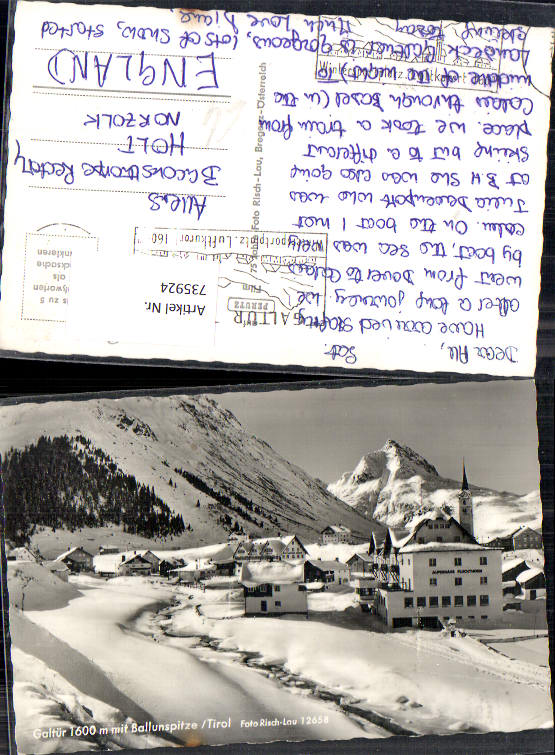 Sat.
Dear All,
Have arrived safely
after a long journey. We
went from Dover to Calais
by boat, the sea was really
calm. On the boat I met
Julia Davenport who was
at B.H She was also going
skiing but to a different
place. We took a train from
Calais through Basel (in the
middle of the night) to
Landeck. Galtür is gorgeous, lots of snow, started
skiing today.
Much love Diane
Allens
HOLT
NORFOLK
ENGLAND
GALTÜR
Film
PERUTZ
Artikel Nr.
735924
Sportplatz, Luftkurort 160
Foto Risch-Lau, Bregenz-Österreich
is zu 5
als
inkleren
ALPENHAUS FLUCHTHORN
Galtür 1600 m mit Ballunspitze / Tirol Foto Risch-Lau 12658